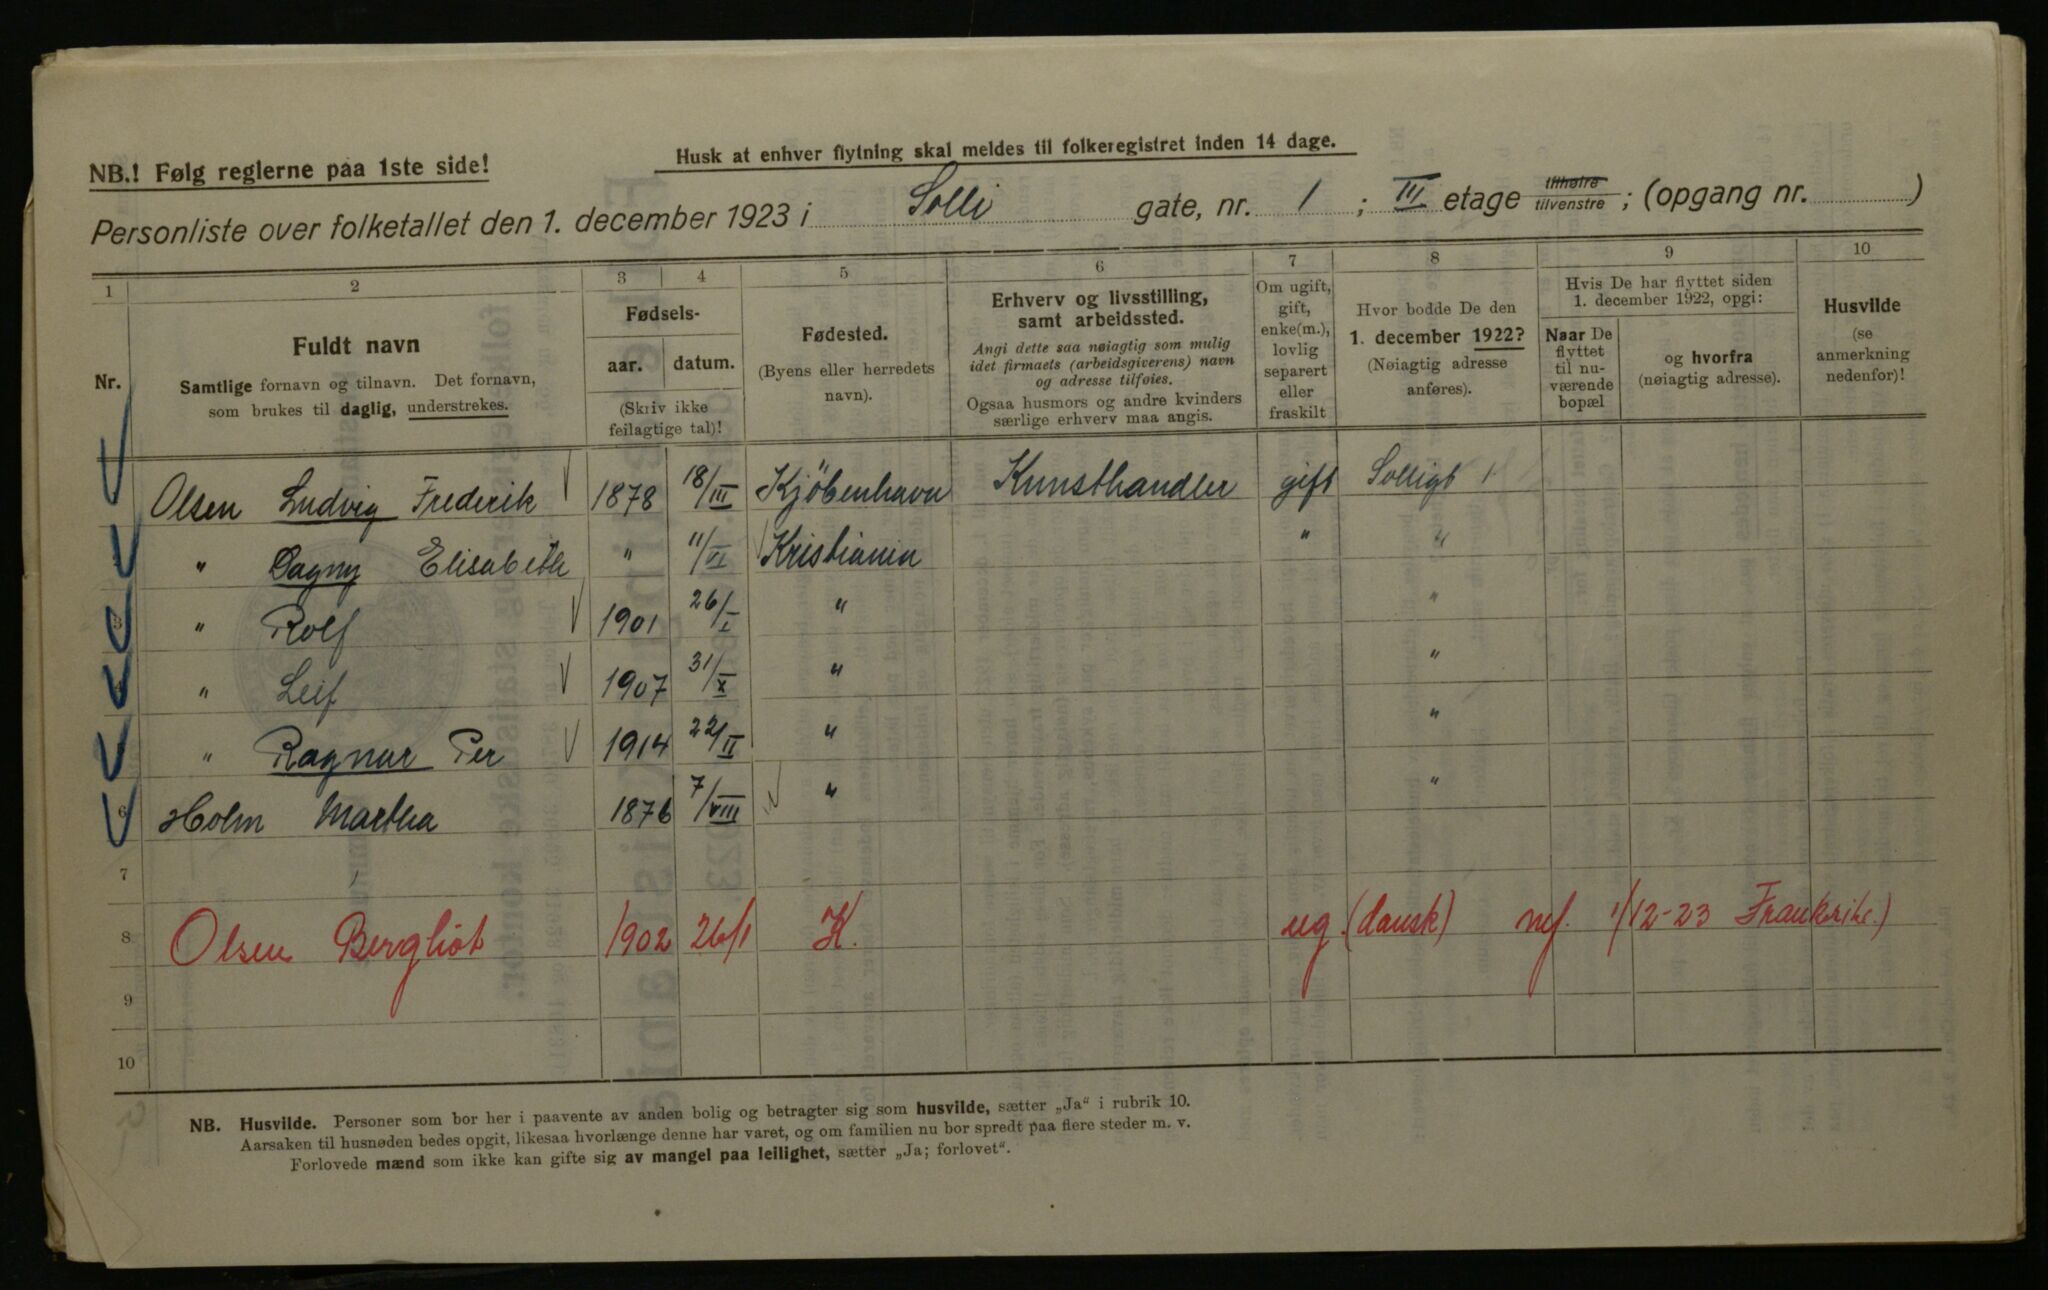 NB.! Følg reglerne paa 1ste side!
Husk at enhver flytning skal meldes til folkeregistret inden 14 dage.
Personliste over folketallet den 1. december 1923 i Solli gate, nr. 1 ; III etage tilhøire tilvenstre ; (opgang nr. )
1 2 3 4 5 6 7 8 9 10
Nr.
Fuldt navn
Samtlige fornavn og tilnavn. Det fornavn,
som brukes til daglig, understrekes.
Fødsels-
aar. datum.
(Skriv ikke
feilagtige tal)!
Fødested.
(Byens eller herredets
navn).
Erhverv og livsstilling,
samt arbeidssted.
Angi dette saa nøiagtig som mulig
idet firmaets (arbeidsgiverens) navn
og adresse tilføies.
Ogsaa husmors og andre kvinders
særlige erhverv maa angis.
Om ugift,
gift,
enke(m.),
lovlig
separert
eller
fraskilt
Hvor bodde De den
1. december 1922?
(Nøiagtig adresse
anføres).
Hvis De har flyttet siden
1. december 1922, opgi:
Naar De
flyttet
til nu-
værende
bopæl
og hvorfra
(nøiagtig adresse).
Husvilde
(se
anmerkning
nedenfor)!
Olsen Ludvig Frederik 1878 18/III Kjöbenhavn Kunsthandler gift Solligt 1
" Dagny Elisabeth " 11/VI Kristiania " "
" Rolf 1901 26/I " "
" Leif 1907 31/X " "
" Ragnar Per 1914 22/II " "
6 Holm Martha 1876 7/VIII " "
7
8 Olsen Bergliot 1902 26/1 K. ug. (dansk) 1/12-23 Frankrike.)
9
10
NB. Husvilde. Personer som bor her i paavente av anden bolig og betragter sig som husvilde, sætter „Ja“ i rubrik 10.
Aarsaken til husnøden bedes opgit, likesaa hvorlænge denne har varet, og om familien nu bor spredt paa flere steder m. v.
Forlovede mænd som ikke kan gifte sig av mangel paa leilighet, sætter „Ja; forlovet“.